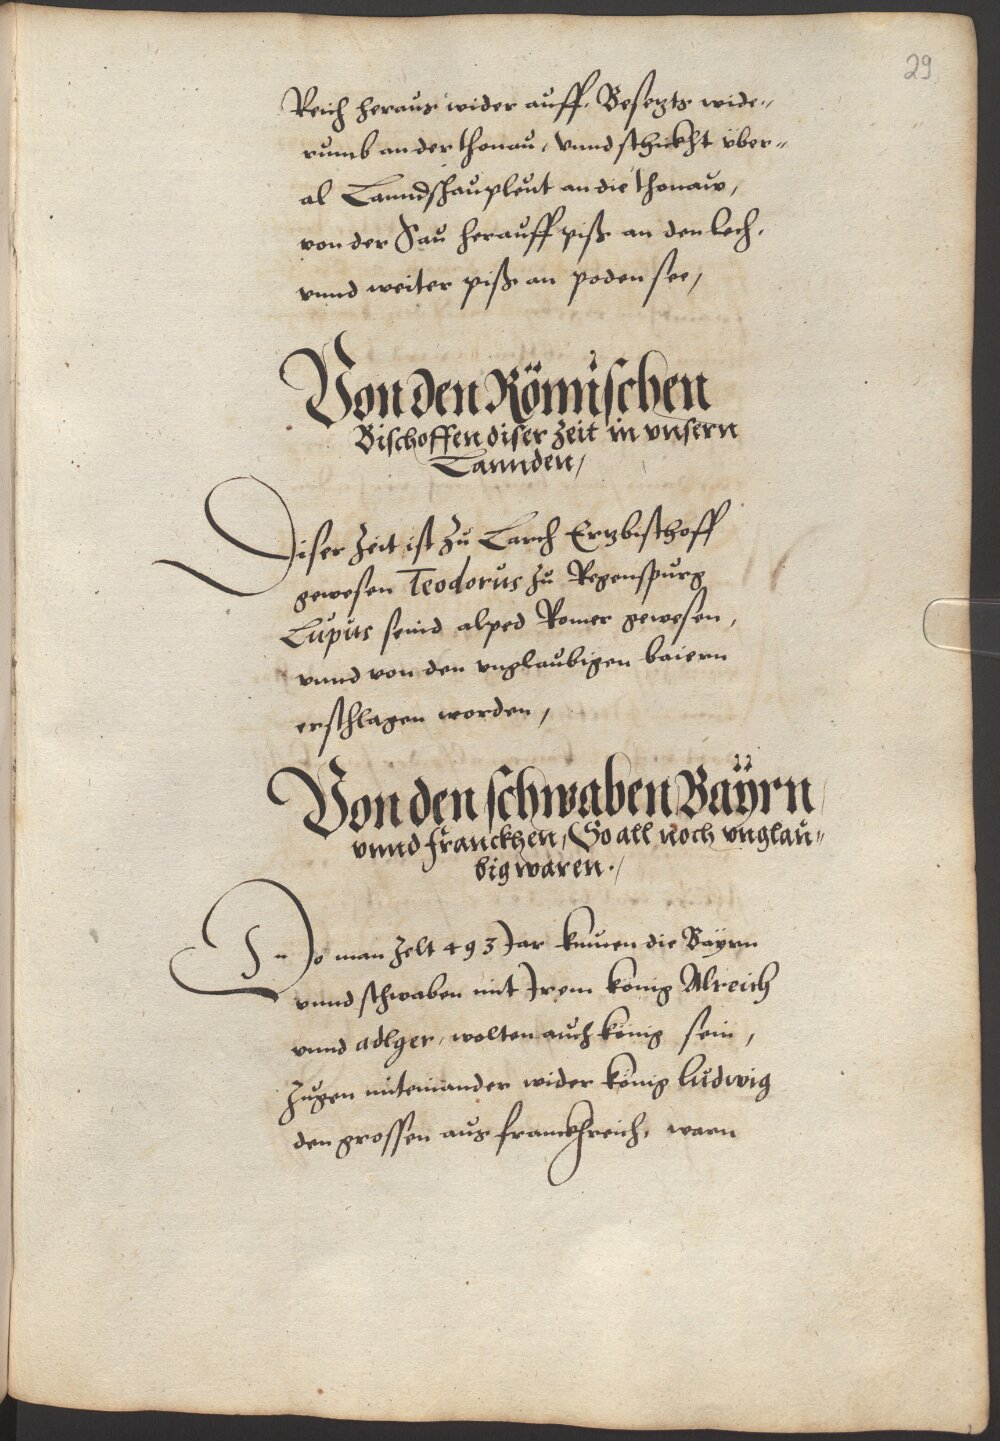 29
Reich heraus wider auff, Besetzts wide„
rumb an der thonau, vnnd schickht vber„
al Lanndshaupleut an die thonaw,
von der Sau herauff piß an den lech,
vnnd weiter piß an poden see,
Von den Römischen
Bischoffen diser zeit in vnsern
Lannden,
Diser zeit ist zu Larch Ertzbischoff
gewesen Teodorus zu Regenspurg
Lupus seind alped Romer gewesen,
vnnd von den vnglaubigen baiern
erschlagen worden,
Von den schwaben Baÿrn
vnnd franckhen, So all noch vnglau„
big waren.
Do man zelt 493 Jar kumen die Bayrn
vnnd schwaben mit Jrem könig Alreich
vnnd adlger, wolten auch könig sein,
zugen miteinander wider könig ludwig
den grossen aus franckhreich, warn